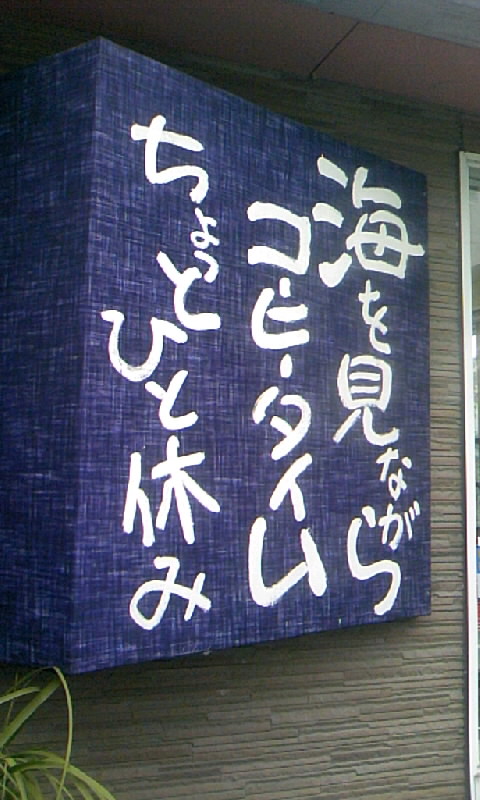 海を見ながら
コーヒータイム
ちょっとひと休み